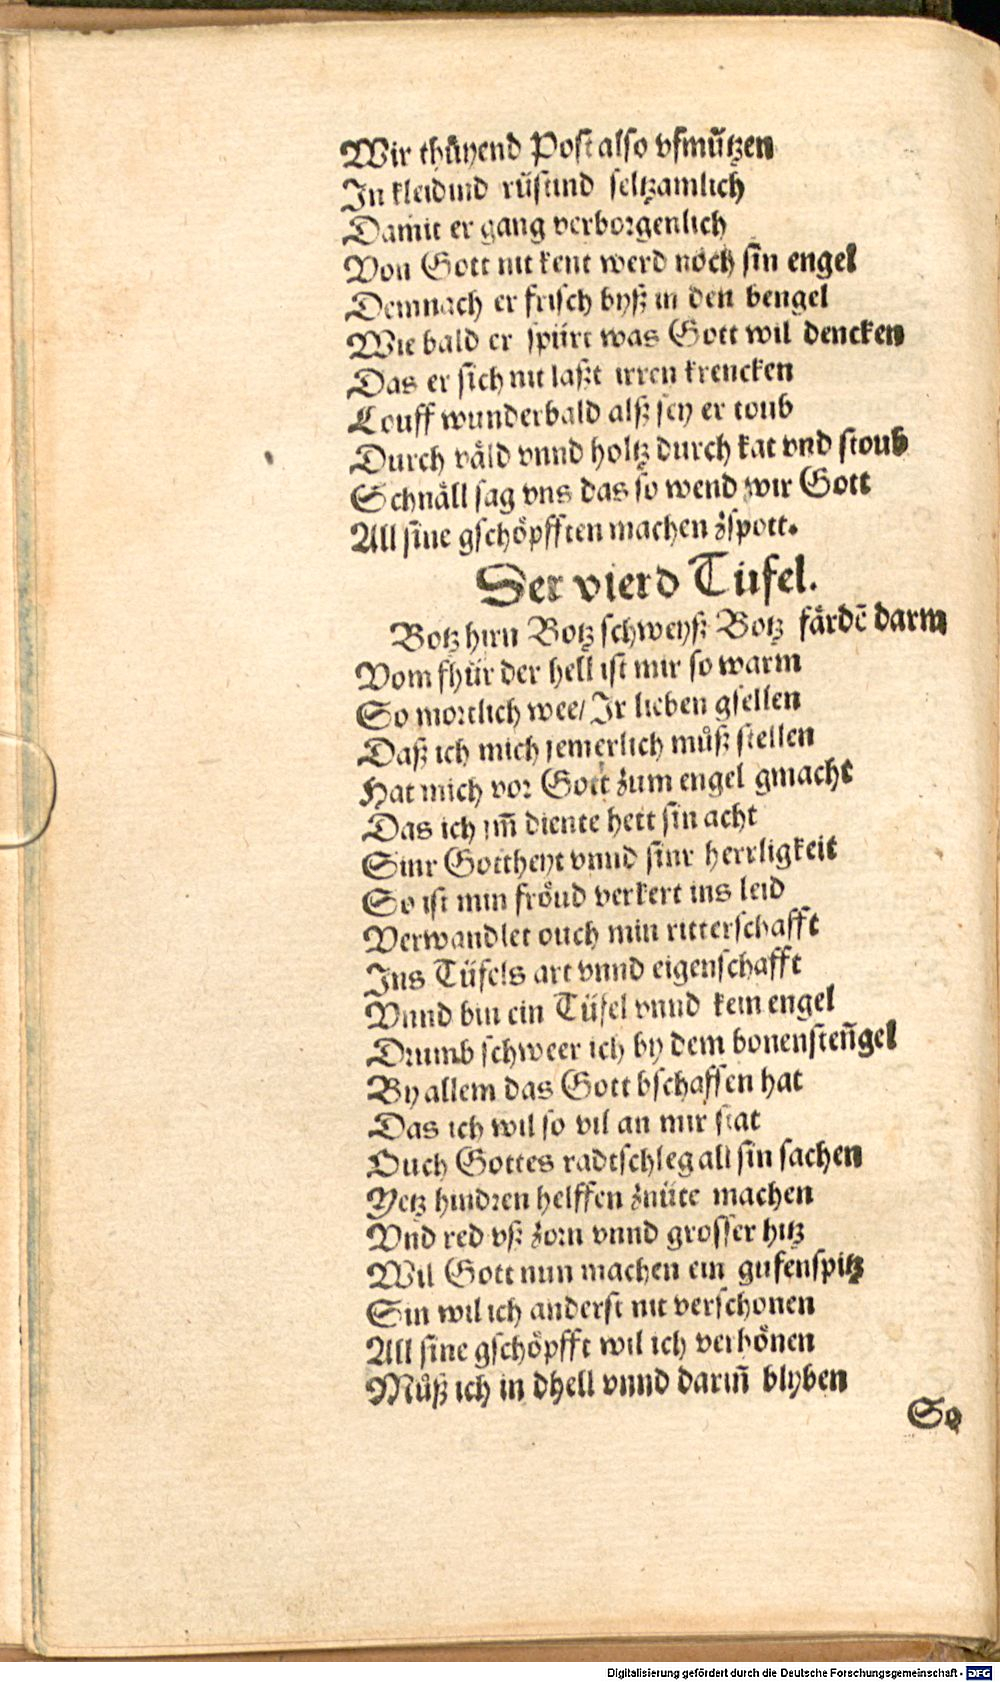 Wir thüyend Post also vfmützen
In kleidind rüstind seltzamlich
Damit er gang verborgenlich
Von Gott nit kent werd noch sin engel
Demnach er frisch byß in den bengel
Wie bald er spürt was Gott wil dencken
Das er sich nit laßt irren krencken
Louff wunderbald alß sey er toub
Durch väld vnnd holtz durch kat vnd stoub
Schnäll sag vns das so wend wir Gott
All sine gschöpfften machen zspott.
Der vierd Tüfel.
Botz hirn Botz schweyß Botz färdē darm
Vom fhür der hell ist mir so warm
So mortlich wee/ Ir lieben gsellen
Daß ich mich jemerlich můß stellen
Hat mich vor Gott zum engel gmacht
Das ich im̄ diente hett sin acht
Sinr Gottheyt vnnd sinr herrligkeit
So ist min fröud verkert ins leid
Verwandlet ouch min ritterschafft
Ins Tüfels art vnnd eigenschafft
Vnnd bin ein Tüfel vnnd kein engel
Drumb schweer ich by dem bonensteñgel
By allem das Gott bschaffen hat
Das ich wil so vil an mir stat
Ouch Gottes radtschleg all sin sachen
Yetz hindren helffen znüte machen
Vnd red vß zorn vnnd grosser hitz
Wil Gott nun machen ein gufenspitz
Sin wil ich anderst nit verschonen
All sine gschöpfft wil ich verhönen
Můß ich in dhell vnnd darin̄ blyben
So
Digitalisierung gefördert durch die Deutsche Forschungsgemeinschaft - DFG